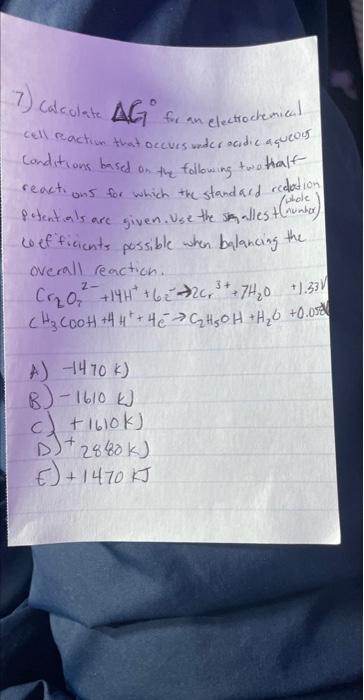 7) Calculate ΔG° for an electrochemical
cell reaction that occurs under acidic aqueous
conditions based on the following two half-
reactions for which the standard reduction
potentials are given. Use the smallest (whole number)
coefficients possible when balancing the
overall reaction.
Cr₂O₇²⁻ + 14H⁺ + 6e⁻ → 2Cr³⁺ + 7H₂O +1.33V
CH₃COOH + 4H⁺ + 4e⁻ → C₂H₅OH + H₂O
A) -1470 kJ
B) -1610 kJ
C) +1610 kJ
D) + 2880 kJ
E) +1470 KJ